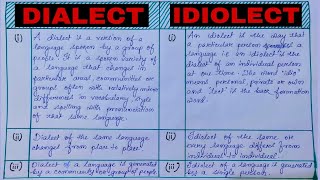 DIALECT
IDIOLECT
(i)
A dialect is a version of a
language spoken by a group of
people. It is a spoken variety of
a language that changes from
particular area, communities or
groups often with relatively minor
differences in vocabulary, style
and spelling with pronunciation
of that same language.
(i)
An idiolect is the way that
a particular person
language i.e. an idiolect is the
dialect of an individual person
at one time. The word 'idio'
means personal, private or own
and 'lect' is the back formation
word.
(ii)
Dialect of the same language
changed from place to place.
(ii)
Idiolect of the same or
any language differ from
individual to individual.
(iii)
Dialect of a language is generated
by a community or group of people
(iii)
Idiolect of a language is generated
by a single person.